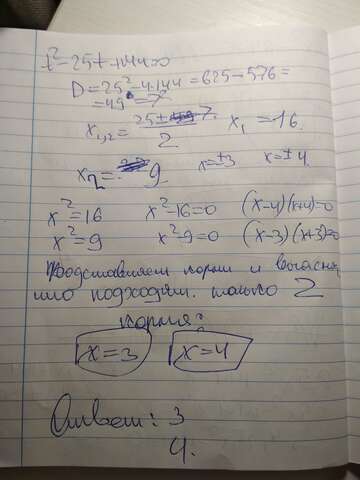 t²-25t+144=0
D=25²-4·144=625-576=
=49=7
x₁,₂=(25±7)/2 x₁=16.
x₂=9 x=±3 x=±4
x²=16 x²-16=0 (x-4)(x+4)=0
x²=9 x²-9=0 (x-3)(x+3)=0
Подставляем корни и выясня
что подходят. только 2
корня:
x=3 x=4
Ответ: 3
4.